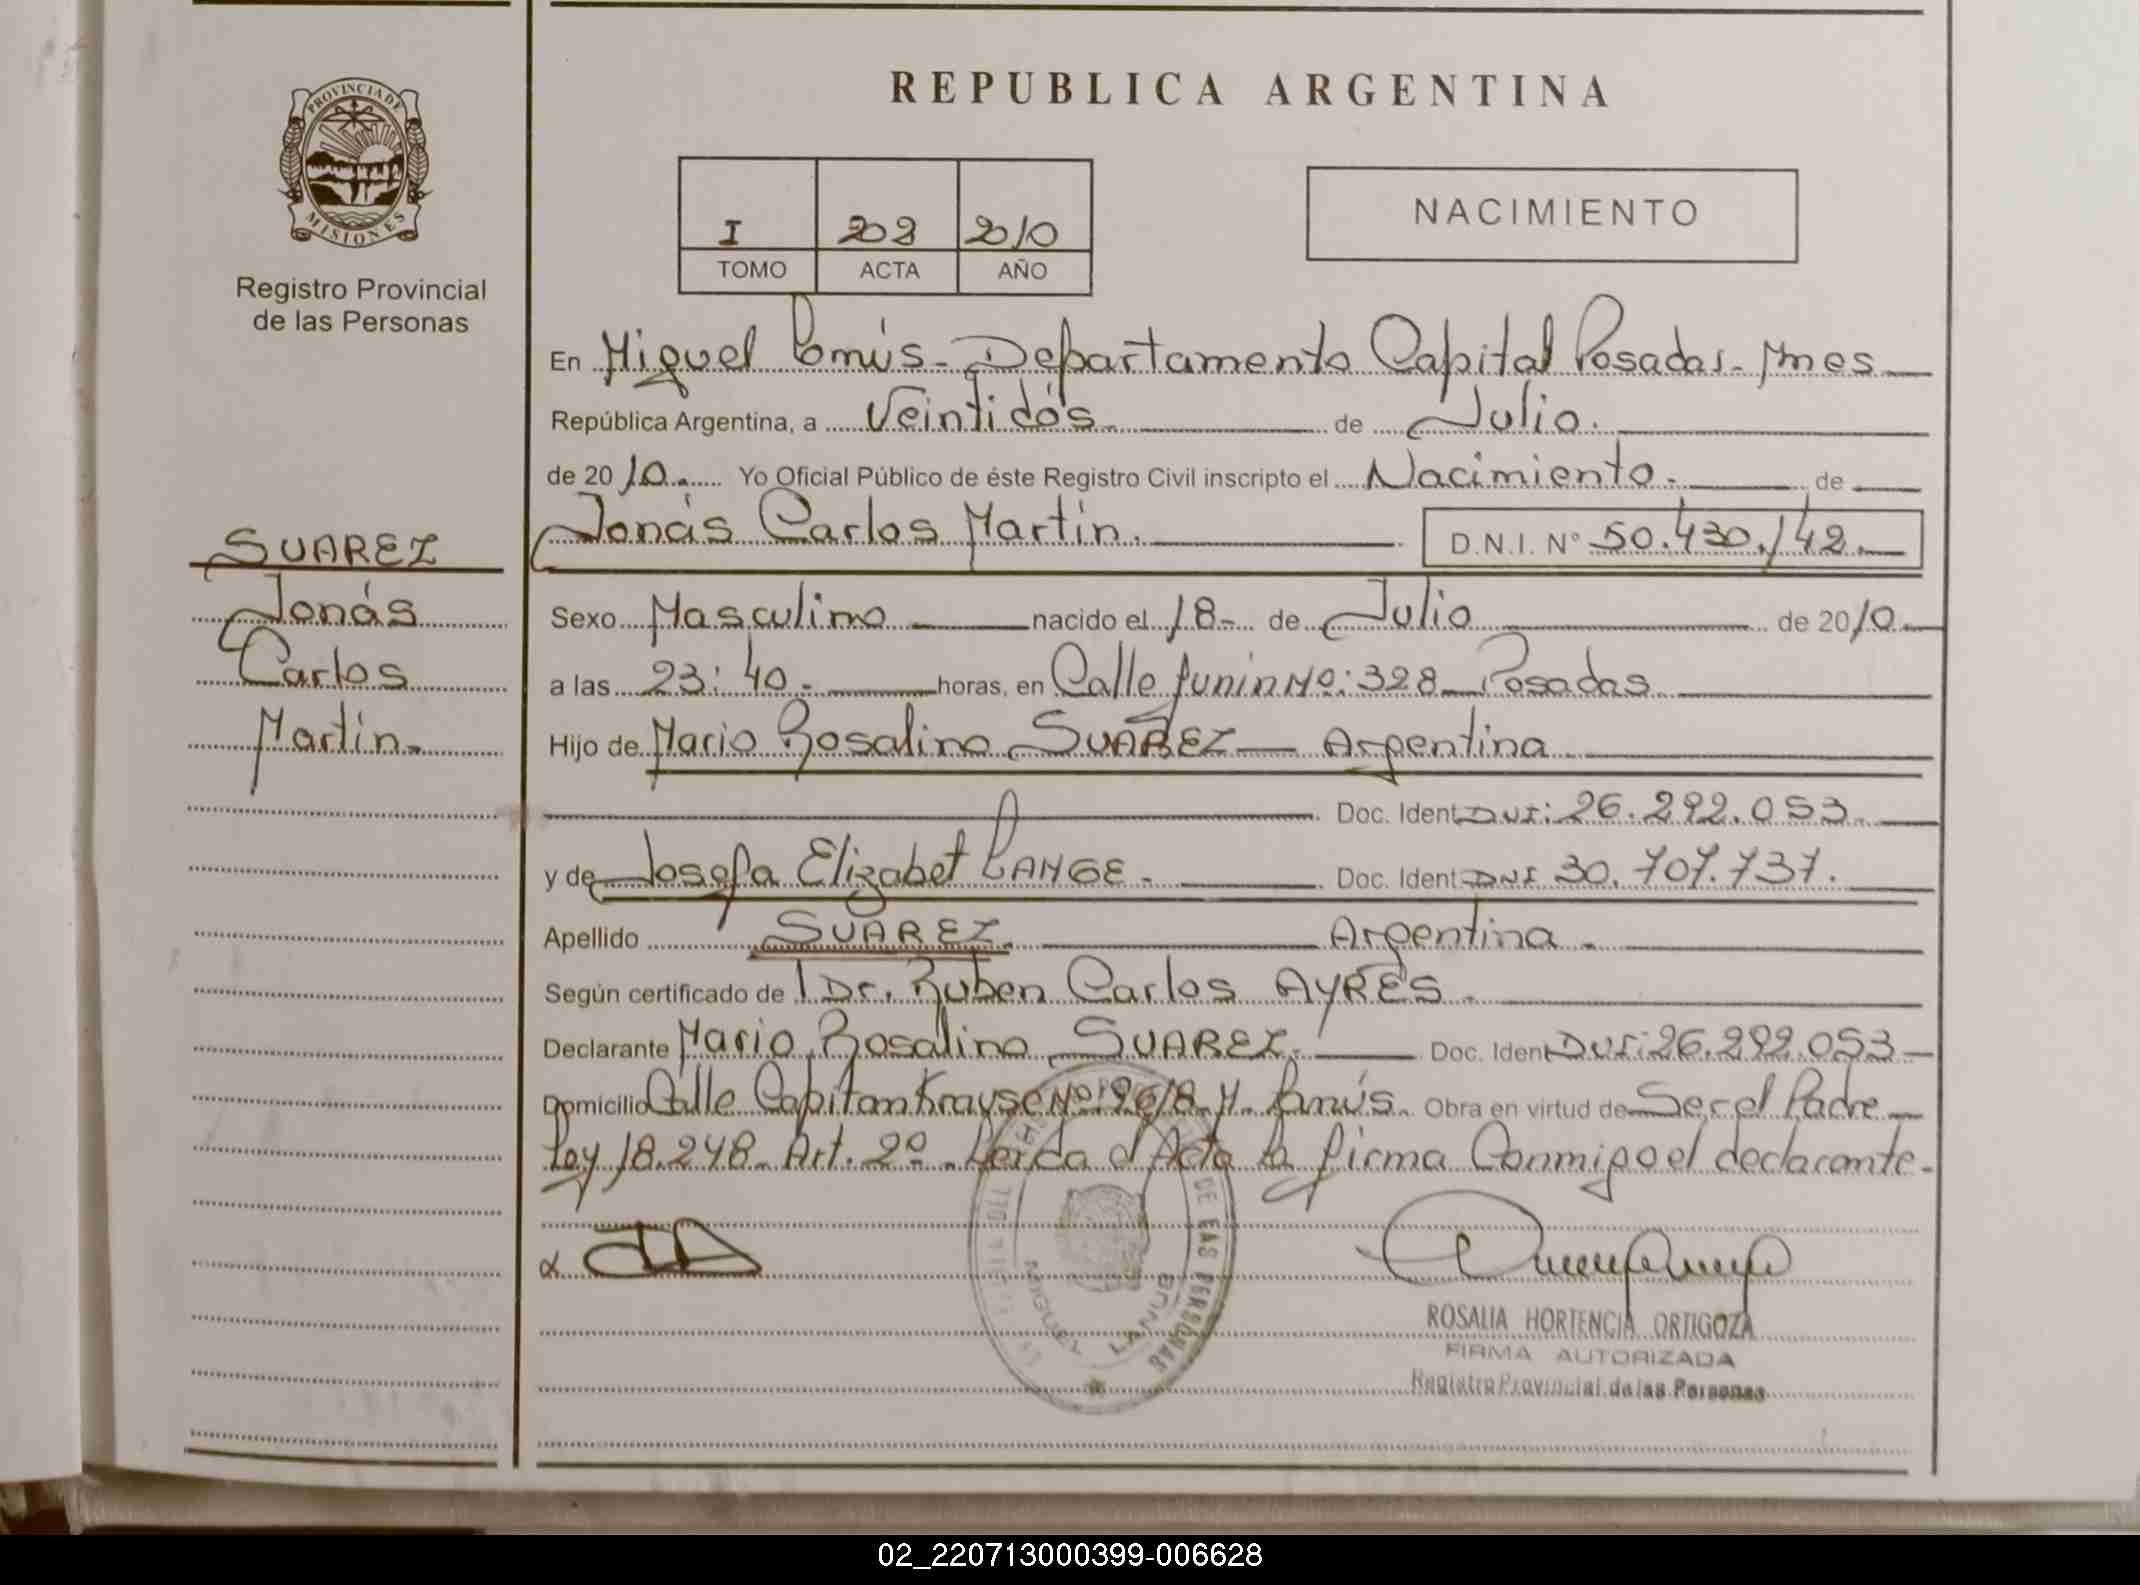 REPUBLICA ARGENTINA
PROVINCIA DE
MISIONES
Registro Provincial
de las Personas
I 208 2010
TOMO ACTA AÑO
NACIMIENTO
En Miguel Lanús - Departamento Capital Posadas - Mnes
República Argentina, a Veintidós de Julio.
de 2010. Yo Oficial Público de éste Registro Civil inscripto el Nacimiento. de
Jonás Carlos Martín. D.N.I. N° 50.430.142.
SUAREZ
Jonás
Carlos
Martín.
Sexo Masculino nacido el 18 de Julio de 2010
a las 23:40 horas, en Calle Junín Nº: 328 Posadas
Hijo de Mario Rosalino SUAREZ Argentina
Doc. Ident DNI: 26.292.053.
y de Josefa Elizabet LANGE. Doc. Ident DNI 30.707.737.
Apellido SUAREZ Argentina.
Según certificado de Dr. Ruben Carlos AYRES.
Declarante Mario Rosalino SUAREZ. Doc. Ident DNI: 26.292.053
Domicilio Calle Capitan Krayse Nº: 2618 M. Lanús. Obra en virtud de Ser el Padre
Ley 18.248 Art. 2º. Leída el Acta la firma Conmigo el declarante.
DE LAS PERSONAS
MIGUEL LANÚS
ROSALIA HORTENCIA ORTIGOZA
FIRMA AUTORIZADA
Registro Provincial de las Personas
02_220713000399-006628